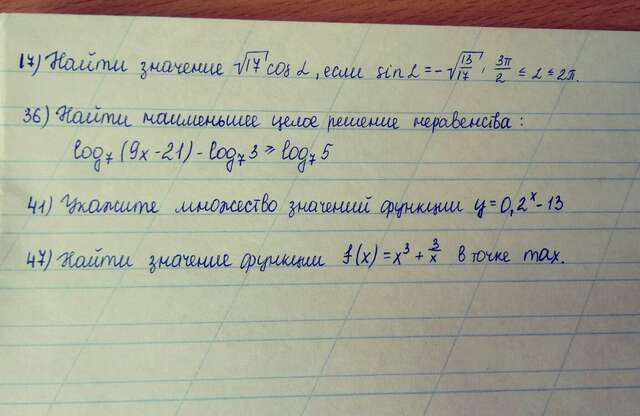 17) Найти значение √17 cos α, если sin α = -√(13/17), 3π/2 ≤ α ≤ 2π.
36) Найти наименьшее целое решение неравенства:
log₇(9x-21) - log₇3 ≥ log₇5
41) Укажите множество значений функции y = 0,2ˣ - 13
47) Найти значение функции f(x) = x³ + 3/x в точке max.